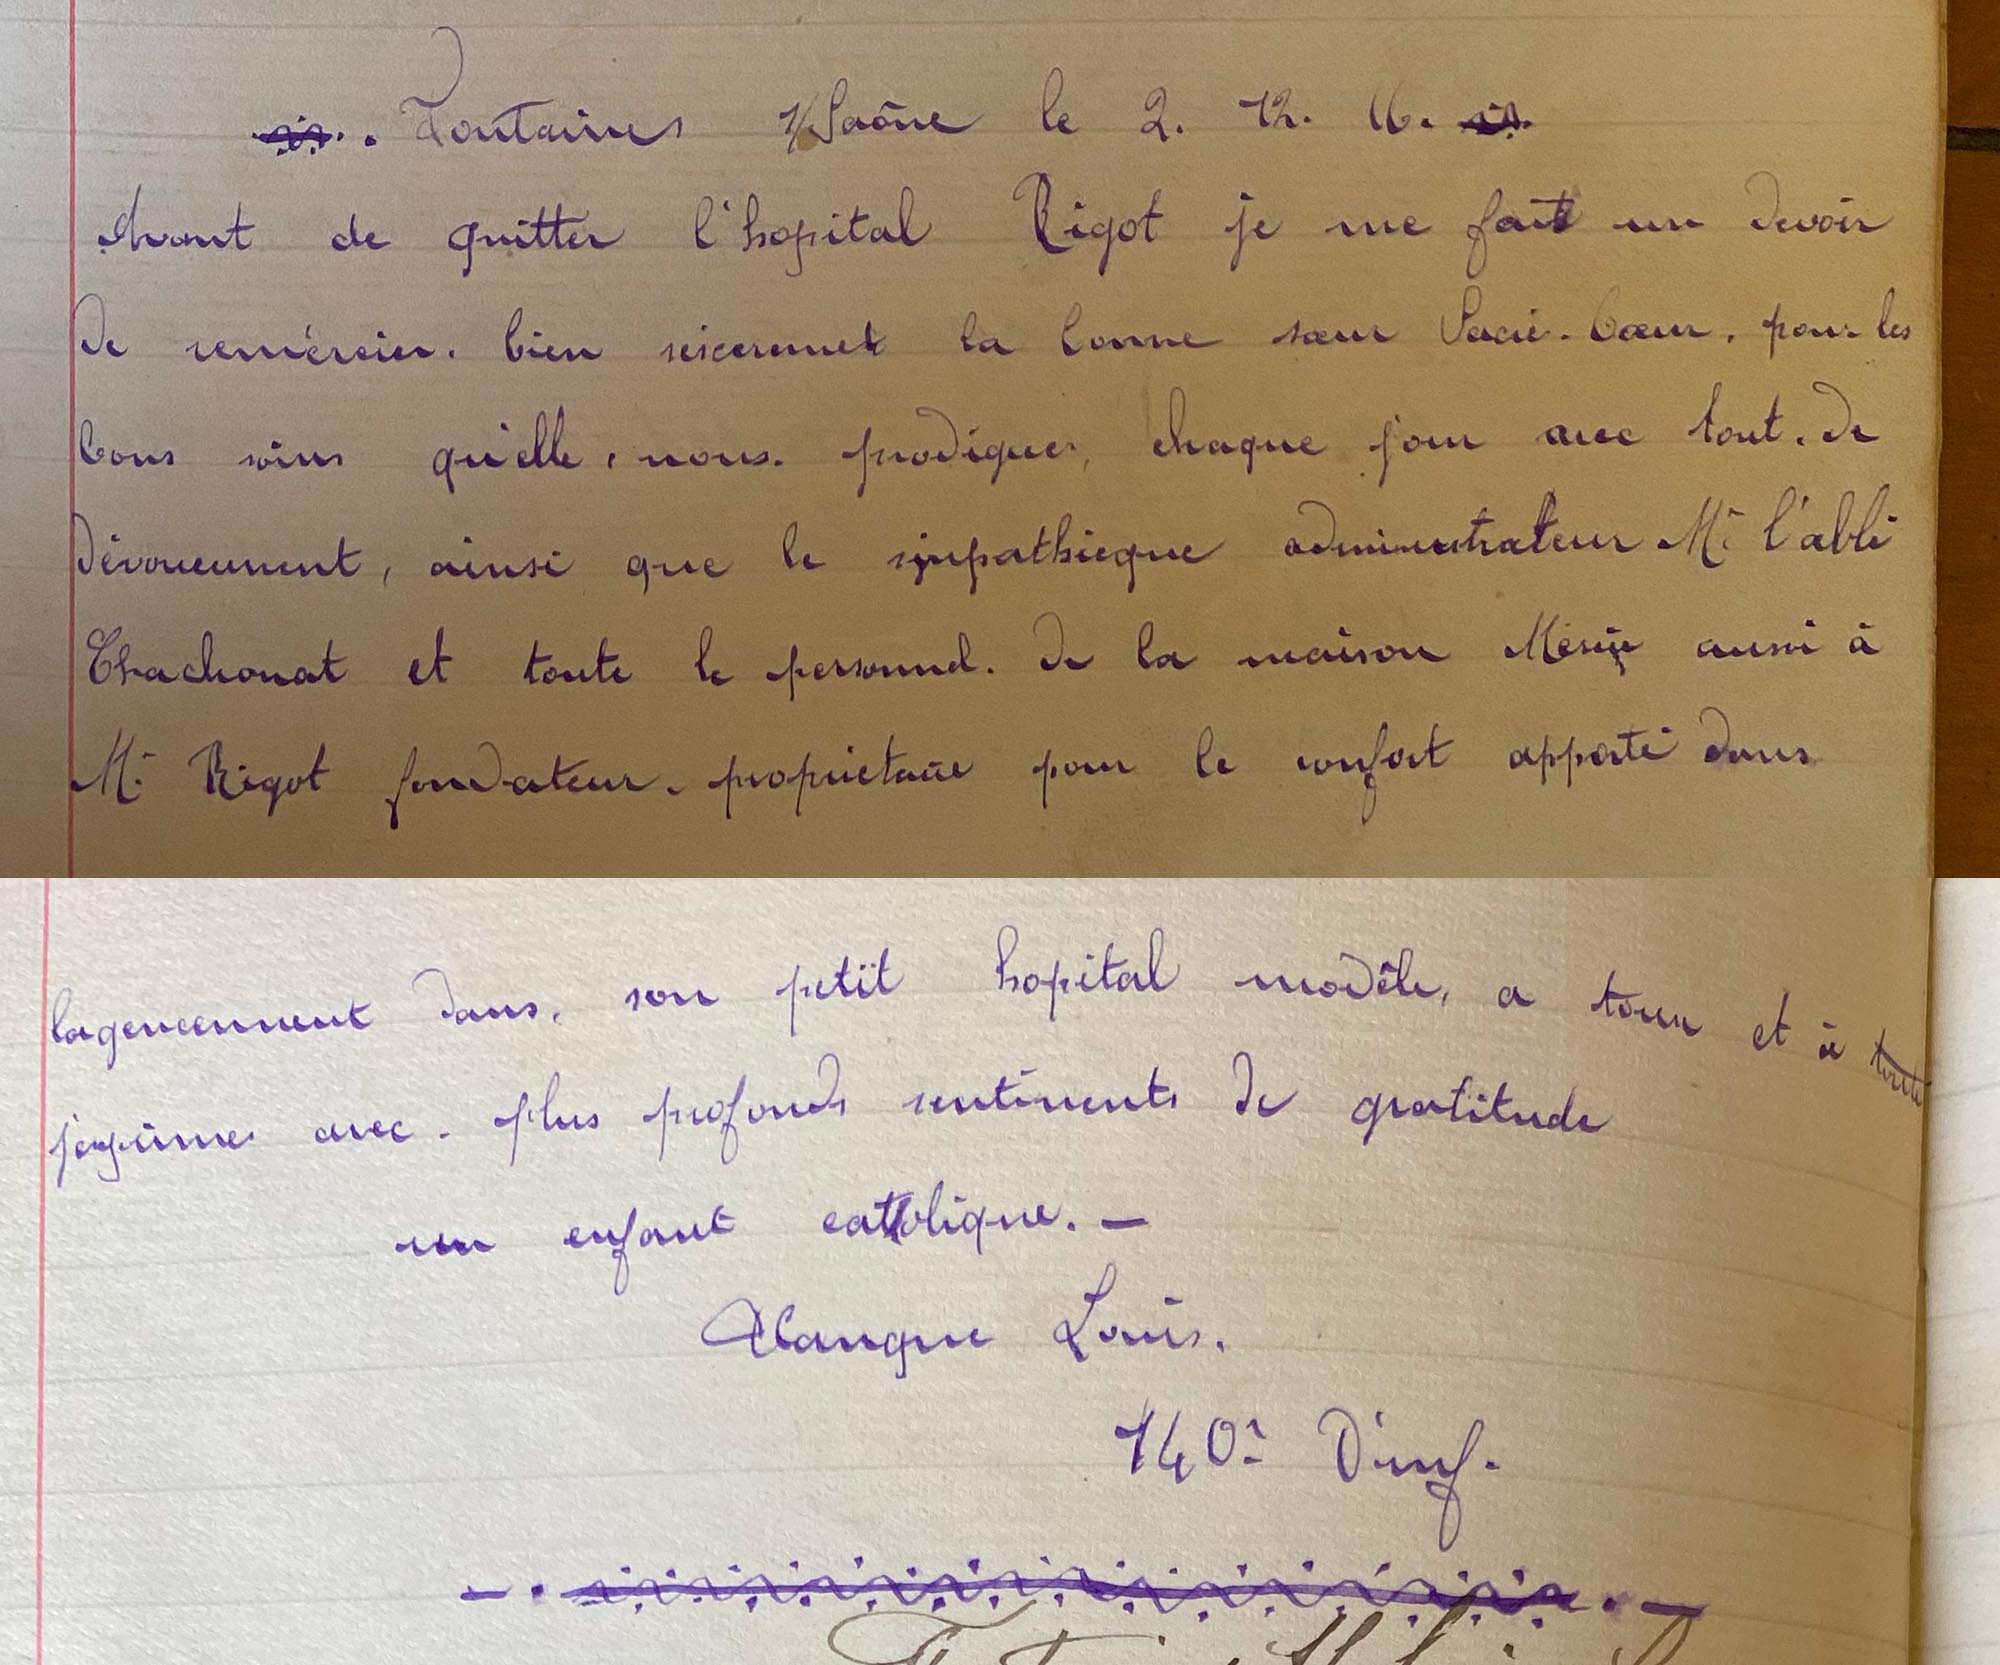 Fontaines s/Saône le 2. 12. 16.
Avant de quitter l'hopital Rigot je me fait un devoir
de remércier. bien siceremet la bonne sœur Sacré-Cœur. pour les
bons soins qu'elle, nous. prodigues, chaque jour avec tout. de
dévouement, ainsi que le sympathieque administrateur Mr l'abbé
Chachonat et toute le personnel. de la maison Mérçie aussi à
Mr Rigot fondateur. propriétaire pour le confort apporté dans
lagencennent dans, son petit hopital modèle, a tous et à toute
jexprimes avec. plus profonds sentiments de gratitude
un enfant catholique. —
Alanque Louis.
140e D'inf.